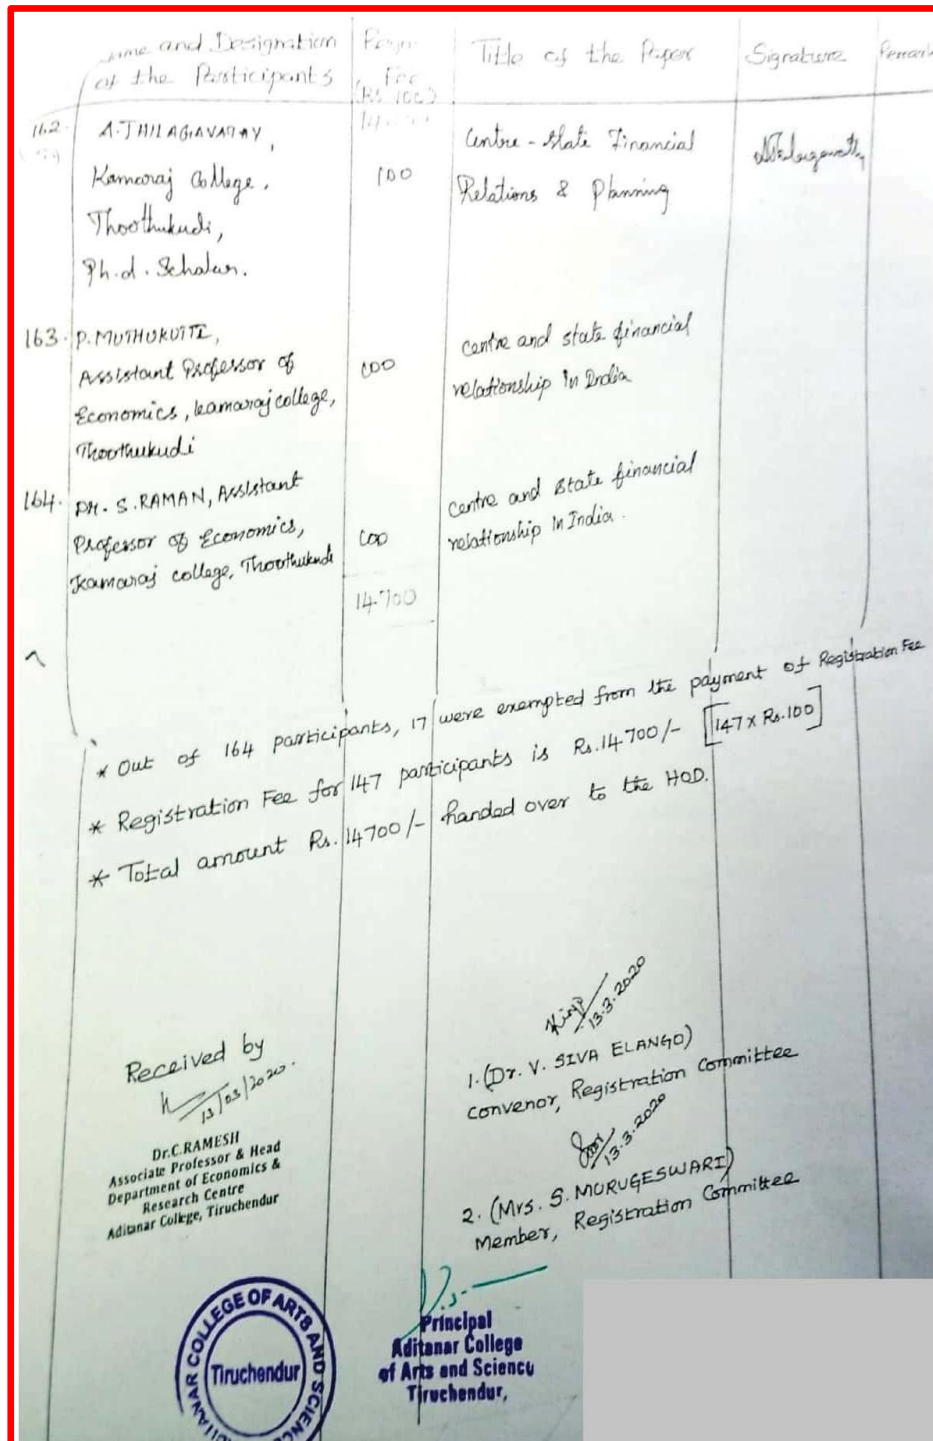 and Designation
of the Participants
Fee
(Rs 100)
Title of the Paper
Signature
162.
A.THILAGAVATHY,
Kamaraj College,
Thoothukudi,
Ph.d. Scholar.
100
Centre - State Financial
Relations & Planning
163. P. MUTHUKUTTI,
Assistant Professor of
Economics, kamaraj college,
Thoothukudi
100
centre and state financial
relationship in India
164. DR. S. RAMAN, Assistant
Professor of Economics,
Kamaraj college, Thoothukudi
100
centre and state financial
relationship in India.
14700
* Out of 164 participants, 17 were exempted from the payment of Registration Fee
* Registration Fee for 147 participants is Rs.14700/- [147 x Rs.100]
* Total amount Rs.14700/- handed over to the HOD.
Received by
13/03/2020.
Dr.C.RAMESH
Associate Professor & Head
Department of Economics &
Research Centre
Aditanar College, Tiruchendur
13.3.2020
1. (Dr. V. SIVA ELANGO)
Convenor, Registration Committee
13.3.2020
2. (Mrs. S. MURUGESWARI)
Member, Registration Committee
COLLEGE OF ARTS AND
Tiruchendur
Principal
Aditanar College
of Arts and Science
Tiruchendur,